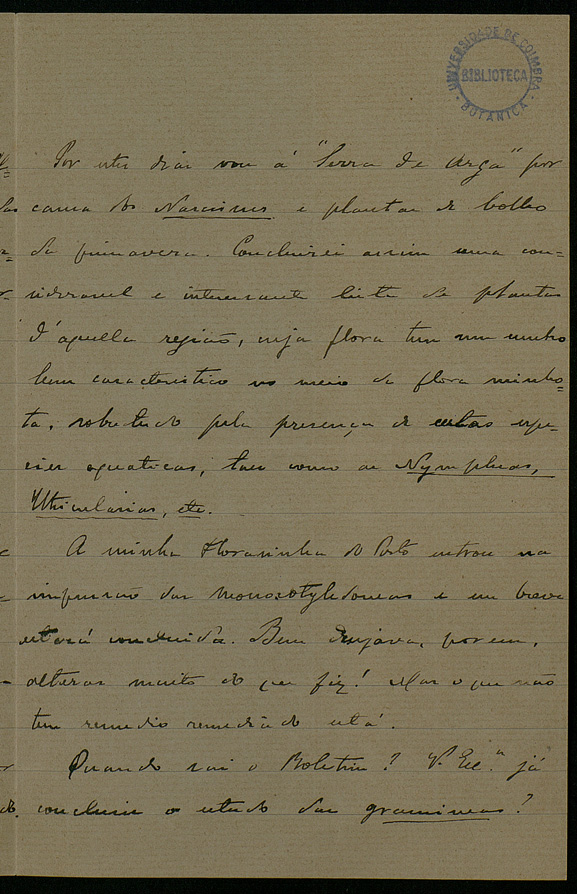 UNIVERSIDADE DE COIMBRA
BIBLIOTECA
BOTANICA
Por estes dias vou á "Serra de Arga" por
causa dos Narcissus e plantas de bolbo
da primavera. Concluirei assim uma con=
sideravel e interessante lista de plantas
d'aquella região, cuja flora tem um cunho
bem caracteristico no meio da flora minho=
ta, sobretudo pela presença de certas espe-
cies aquaticas, taes como as Nympheas,
Utricularias, etc.
A minha Florasinha do Porto entrou na
impressão das monocotyledoneas e em breve
estará concluida. Bem desejava, porem,
alterar muito do que fiz! Mas o que não
tem remedio remediado está.
Quando sai o Boletim? V. Exc.ª já
concluiu o estudo das gramineas?